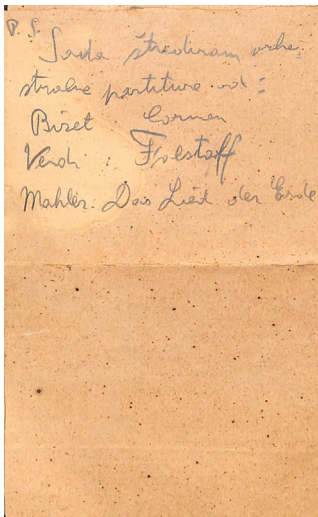 P. S.
Sada študiram orke-
stralne partiture od :
Bizet Carmen
Verdi : Falstaff
Mahler. Das Lied der Erde